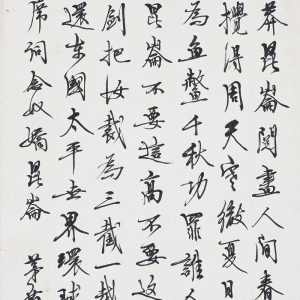 莽昆崙閱盡人间春
攪得周天寒徹夏日
為魚鱉千秋功罪誰人
昆崙不要這高不要这
劍把汝裁為三截一截
還东國太平世界環球
席词念奴嬌昆崙 茅